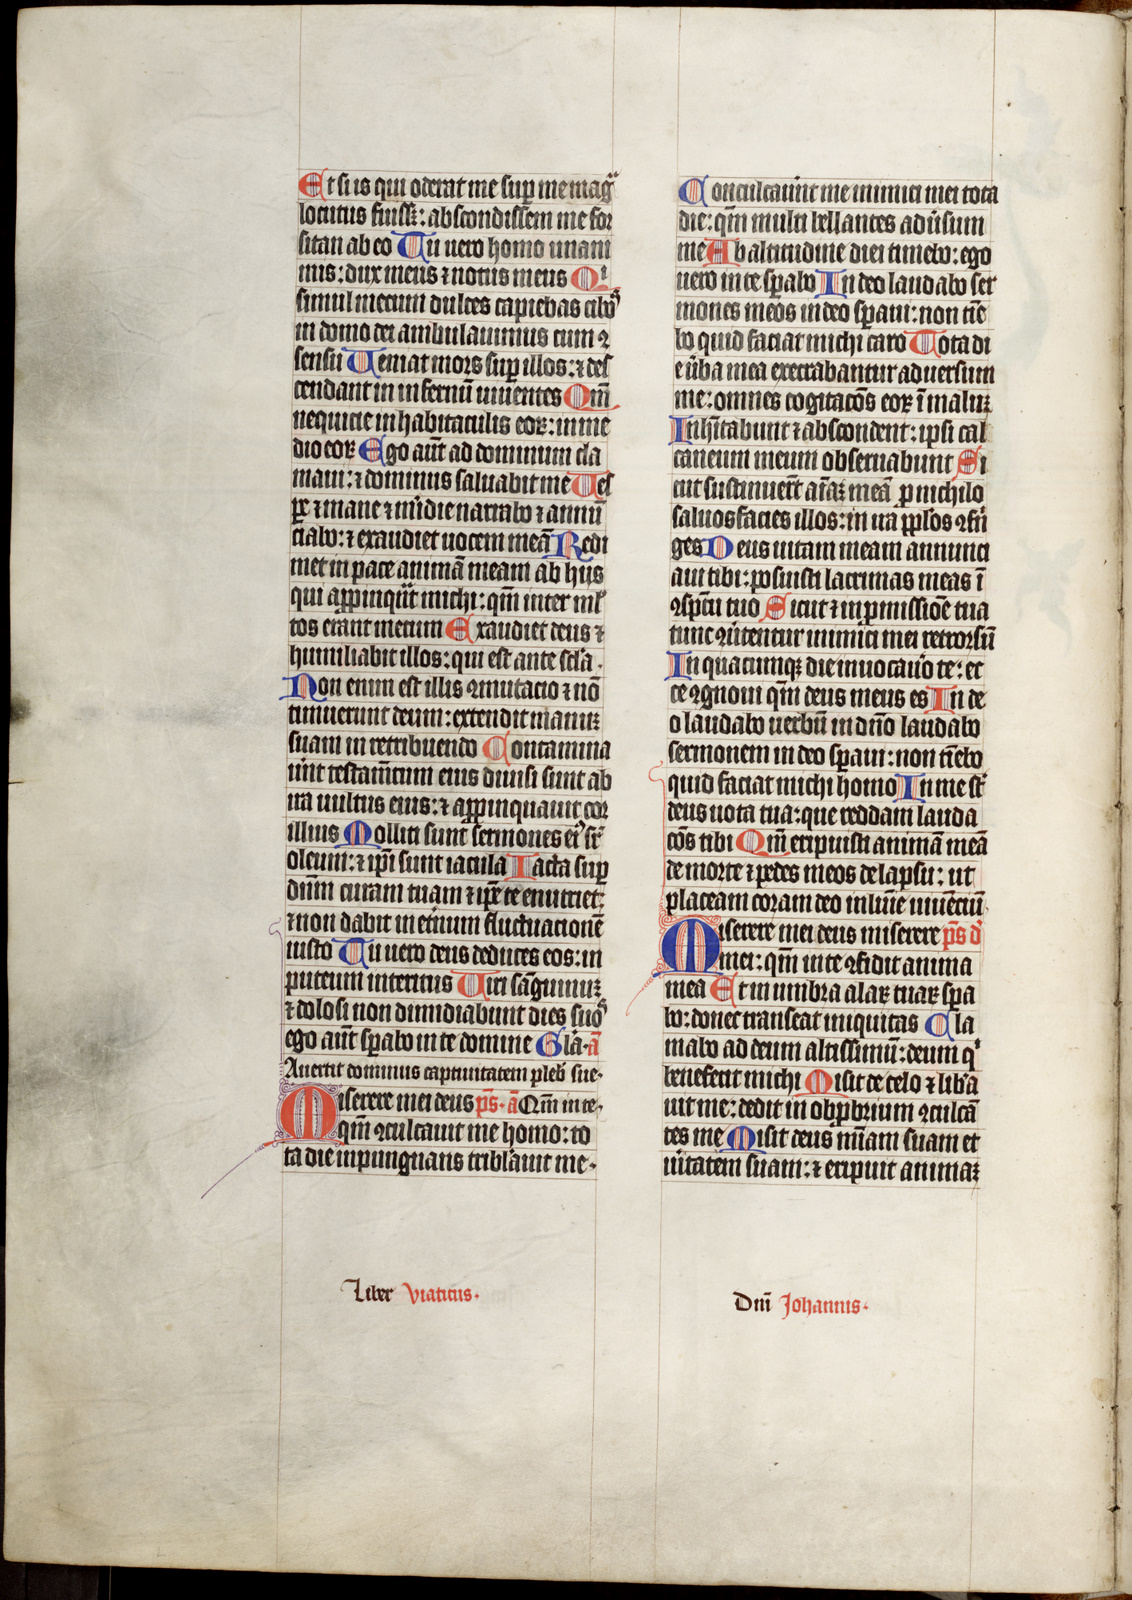 Et si is qui oderat me sup̱ me mag᷑
locutus fuiss; : abscondissem me for
sitan ab eo Tu uero homo unani
mis : dux meus ⁊ notus meus Qͥ
simul mecum dulces capiebas cibꝰ
in domo dei ambulauimus cum ꝯ
sensu Ueniat mors sup̱ illos : ⁊ des
cendant in infernū uiuentes Qm̄
nequicie in habitaculis eoꝝ : in me
dio eoꝝ Ego aūt ad dominum cla
maui : ⁊ dominus saluabit me Ues
pe ⁊ mane ⁊ m̄idie narrabo ⁊ annū
ciabo : ⁊ exaudiet uocem meā Redi
met in pace animā meam ab hijs
qui app̱inqūt michi : qm̄ inter ml̓
tos erant mecum Exaudiet deus ⁊
humiliabit illos : qui est ante scl̓a .
Non enim est illis ꝯmutacio ⁊ nō
timuerunt deum : extendit manuꝫ
suam in retribuendo Contamina
ūnt testam̄tum eius diuisi sunt ab
ira uultus eius : ⁊ app̱inquauit cor
illius Molliti sunt sermones eiꝰ sr̄
oleum : ⁊ ip̄i sunt iacula Iacta sup̱
dūm curam tuam ⁊ ip̄e te enutriet :
⁊ non dabit in et̄num fluctuacionē
iusto Tu uero deus deduces eos : in
puteum interitus Uiri sāguinuꝫ
⁊ dolosi non dimidiabunt dies suoꝰ
ego aūt sp̱abo in te domine Gl̓a . a̅
Auertit dominus captiuitatem plebꝰ sue .
Miserere mei deus p̄s . a̅ Qm̄ in te .
qm̄ ꝯculcauit me homo : to
ta die inpungnans tribl̓auit me .
Conculcaūnt me inimici mei tota
die : qm̄ multi bellantes adūsum
me Ab altitudine diei timebo : ego
uero in te sp̱abo In deo laudabo ser
mones meos in deo sp̱aui : non tīe
bo quid faciat michi caro Tota di
e ūba mea execrabantur aduersum
me : omnes cogitacōs eoꝝ ī maluꝫ
Inhītabunt ⁊ abscondent : ipsi cal
caneum meum obseruabunt Si
cut sustinuer̄t aīaꝫ meā p̱ nichilo
saluos facies illos : in ira pp̱los ꝯfrī
ges Deus uitam meam annunci
aui tibi : posuisti lacrimas meas ī
ꝯsp̄cu tuo Sicut ⁊ in p̱missiōe tua
tunc ꝯūtentur inimici mei retrorsū
In quacumqꝫ die inuocauōo te : ec
ce ꝯgnoui qm̄ deus meus es In de
o laudabo uerbū in dn̄o laudabo
sermonem in deo sp̱aui : non tīebo
quid faciat michi homo In me st̄
deus uota tua : que reddam lauda
cōs tibi Qm̄ eripuisti animā meā
de morte ⁊ pedes meos de lapsu : ut
placeam coram deo in lūīe uiuenciū .
Miserere mei deus miserere p̄s d̄
mei : qm̄ in te ꝯfidit anima
mea Et in umbra alaꝝ tuaꝝ sp̱a
bo : donec transeat iniquitas Cla
mabo ad deum altissimū : deum qͥ
benefecit michi Misit de celo ⁊ lib̓a
uit me : dedit in obp̱brium ꝯculcā
tes me Misit deus mīam suam et
ūitatem suam : ⁊ eripuit animaꝫ
Liber Viaticus .
Dn̄i Johannis .